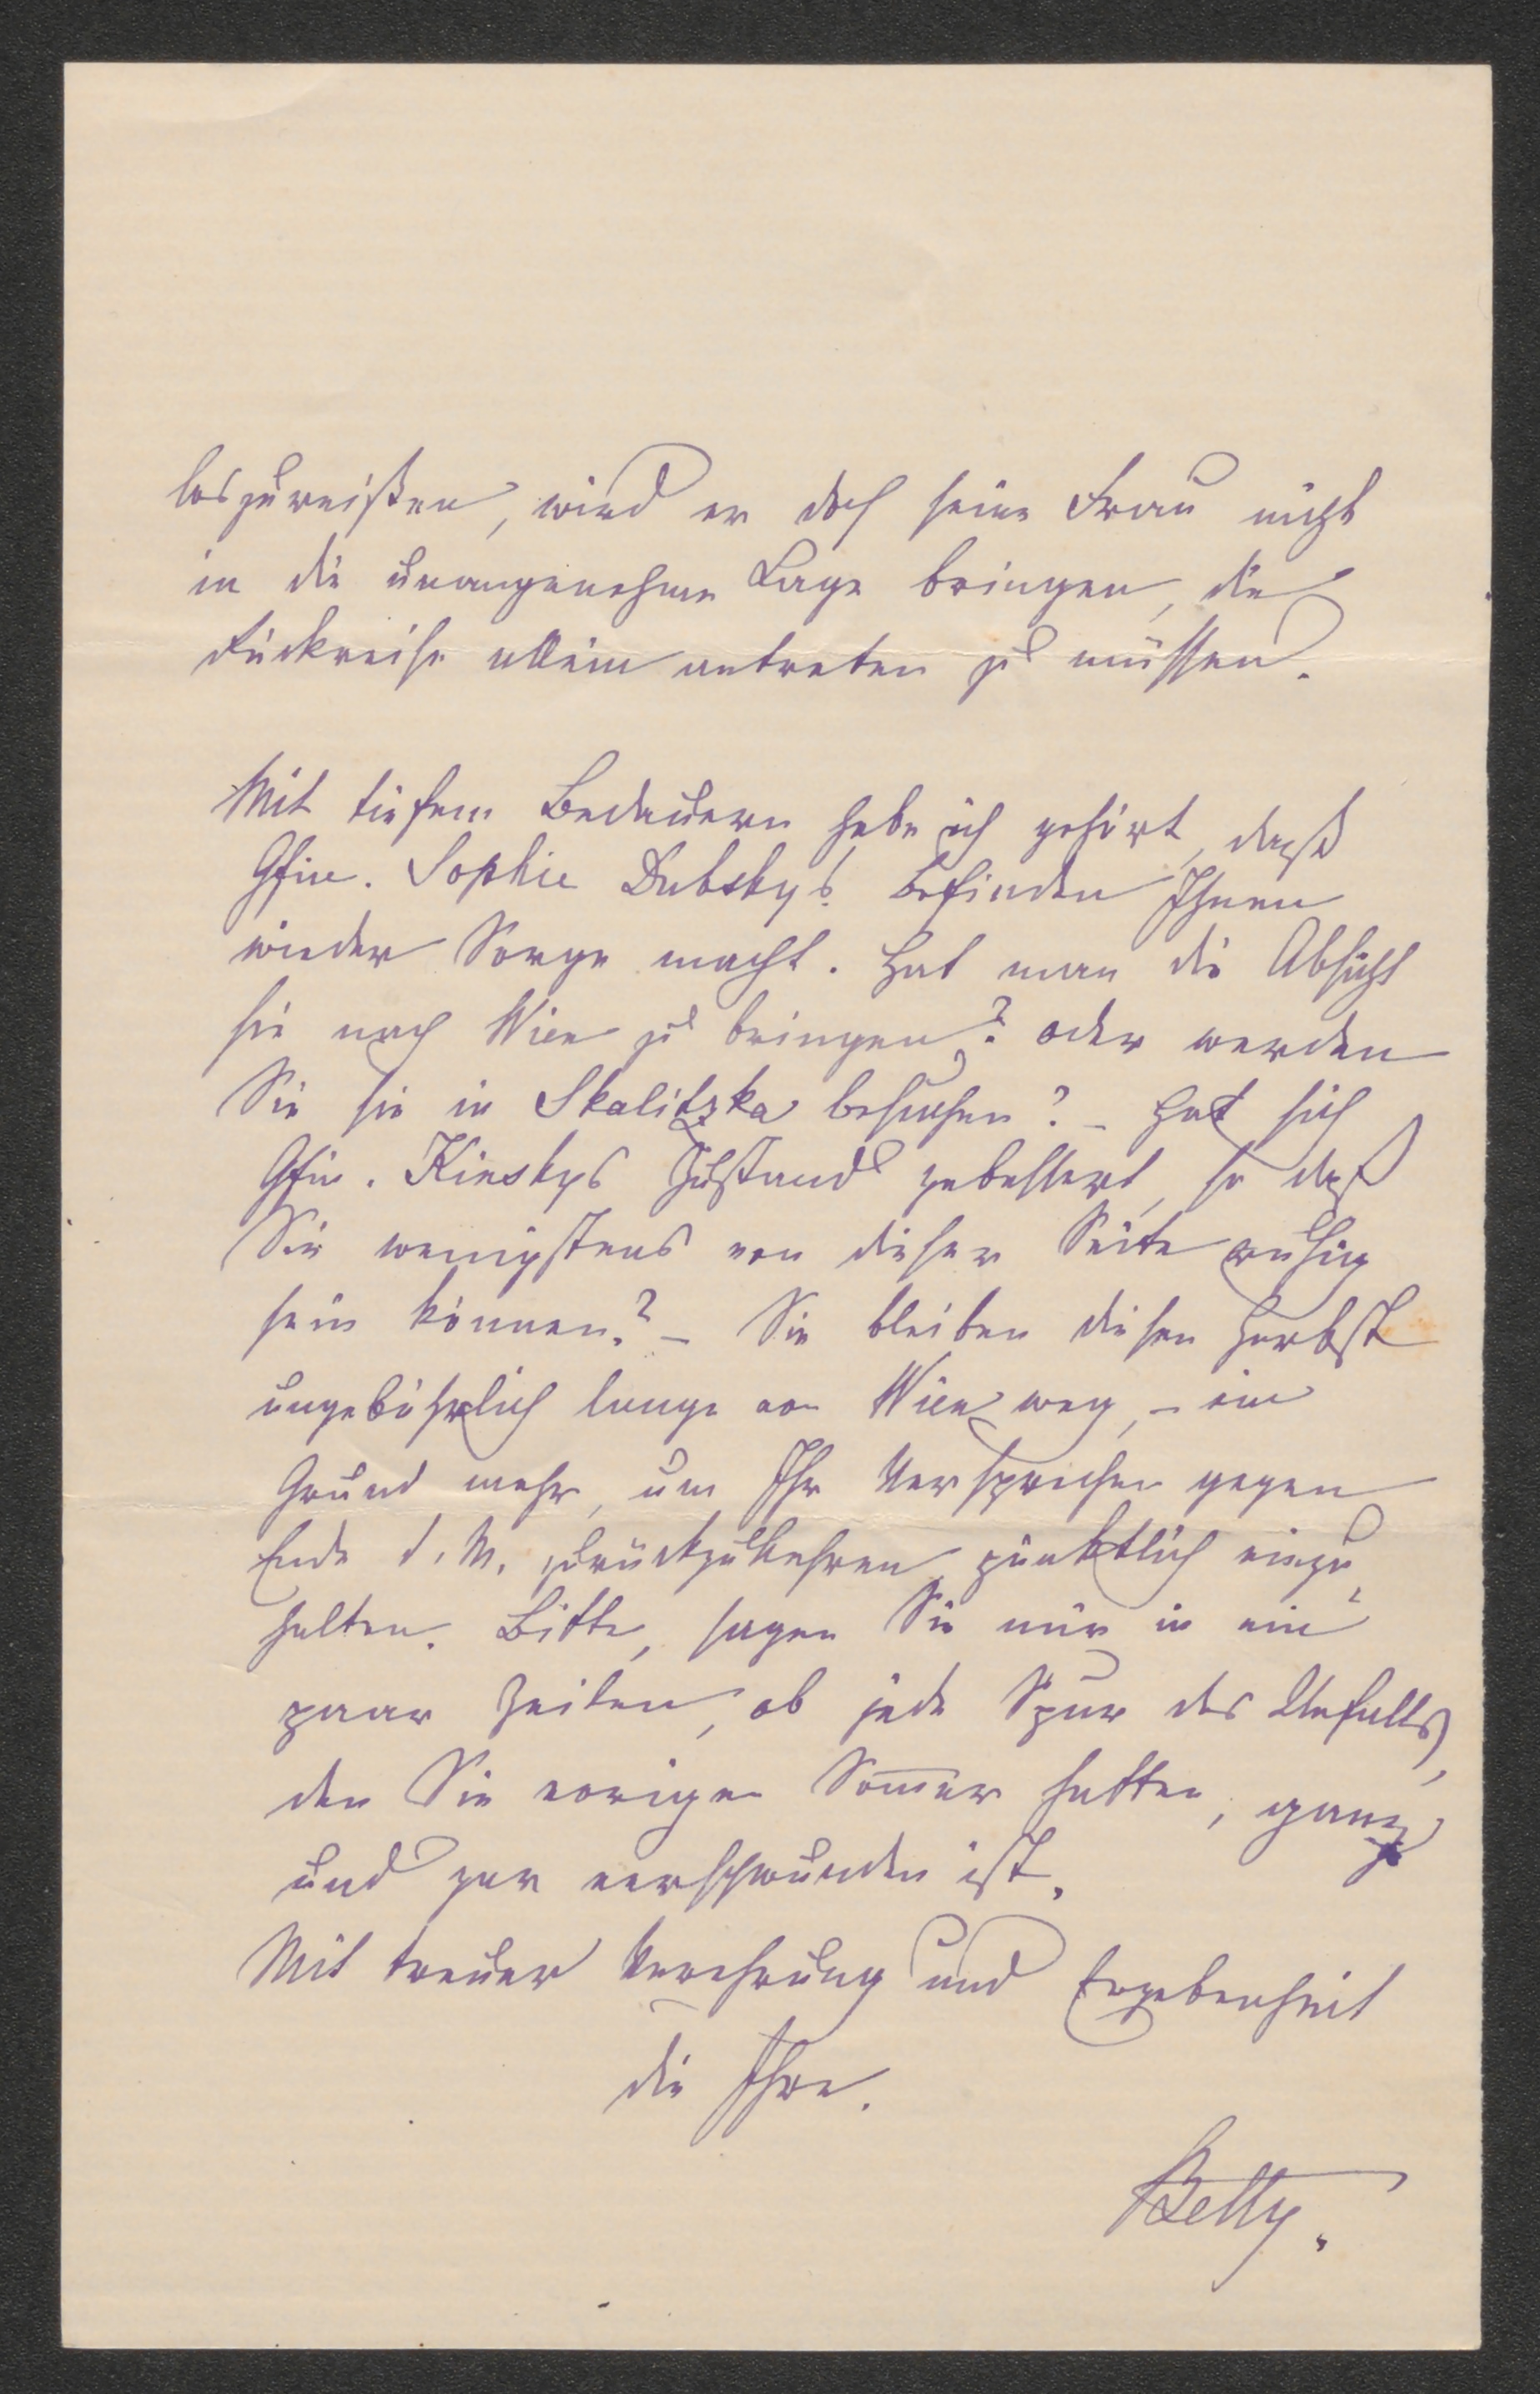 loszureißen, wird er doch seine Frau nicht
in die unangenehme Lage bringen, die
Rückreise allein antreten zu müssen.
Mit tiefem Bedauern habe ich gehört, daß
Gfin. Sophie Dubskys Befinden Ihnen
wieder Sorge macht. Hat man die Absicht
sie nach Wien zu bringen? oder werden
Sie sie in Skalitzka besuchen? – Hat sich
Gfin. Kinskys Zustand gebessert, so daß
Sie wenigstens von dieser Seite ruhig
sein können? – Sie bleiben diesen Herbst
ungebührlich lange von Wien weg, – ein
Grund mehr, um Ihr Versprechen gegen
Ende d. M. zurückzukehren pünktlich einzu
halten. Bitte, sagen Sie mir in ein
paar Zeilen, ob jede Spur des Unfalls,
den Sie vorigen Som̅er hatten, ganz
und gar verschwunden ist.
Mit treuer Verehrung und Ergebenheit
die Ihre.
Betty.